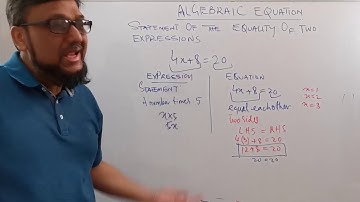 ALGEBRAIC EQUATION
STATEMENT OF THE EQUALITY OF TWO
EXPRESSIONS
4x+8=20
EXPRESSION
STATEMENT
A number times 5
x×5
5x
EQUATION
4x+8=20
equal each other
Two sides
LHS = RHS
4(3)+8=20
12+8=20
20=20
x=1
x=2
x=3